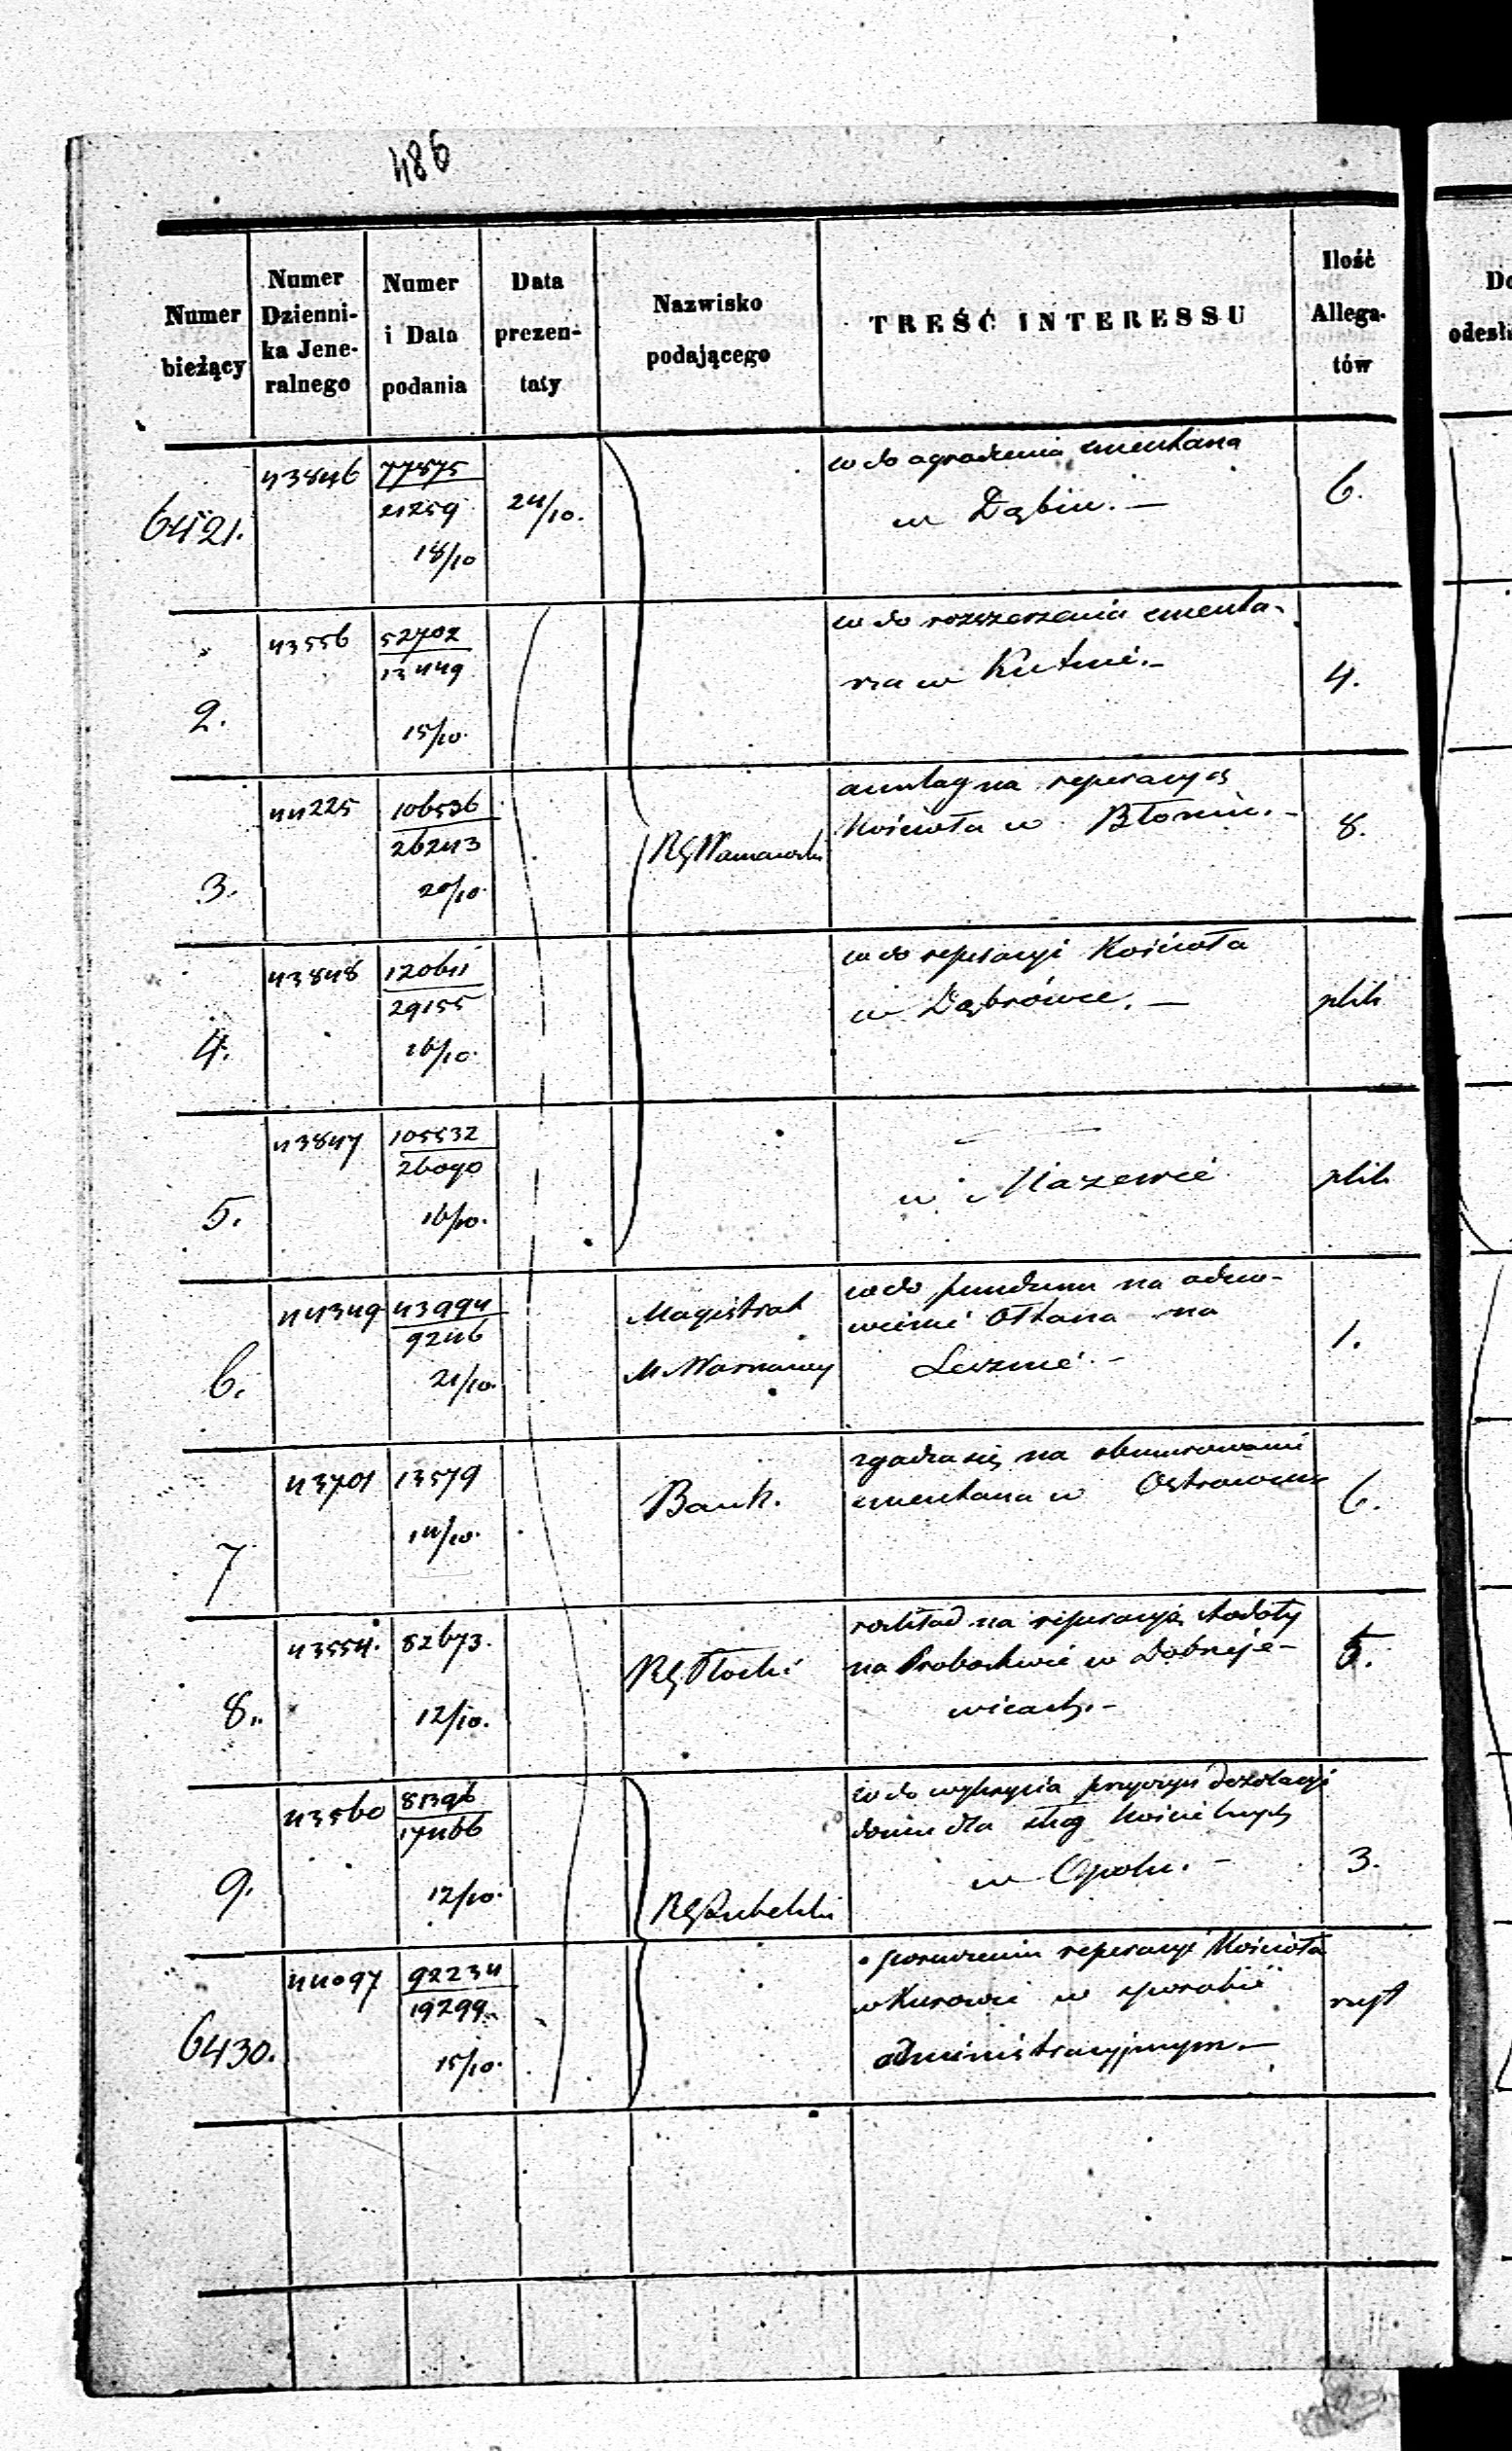 486
Numer bieżący
Numer Dzienni-
ka Jene-
ralnego
Numer
i Data
podania
Data
prezen-
taty
Nazwisko
podającego
TREŚĆ INTERESSU
Ilość
Allega-
tów
6421.
43846
77875
21259
18/10
24/10.
w do ogrodzenia cmentarza
w Dąbiu. —
6.
2.
43556
52702
13449
15/10.
w do rozszerzenia cmenta-
rza w Kutnie. —
4.
3.
44225
106536
26243
20/10.
RG Warszawski
na reperacyą
Kościoła w Błoniu. —
8.
4.
43848
120641
29155
16/10.
w do reperacyi Kościoła
w Dąbrówce. —
plik
5.
43847
105532
26090
16/10.
w Mazewie
plik
6.
44349
43994
9246
21/10.
Magistrat
M. Warszawy
w do funduszu na odno-
wienie Ołtarza na
Lesznie. —
1.
7
43701
13579
14/10.
Bank.
zgadza się na obmurowanie
cmentarza w
6.
8.
43554.
82673.
12/10.
RG Płocki
rozkład na reperacyę stodoły
na Probostwie w Dobrzeje-
wicach. —
5.
9.
43560
81396
17466
12/10.
RG Lubelski
w do wykrycia przyczyn dezolacyi
domu dla sług Kościelnych
w Opolu. —
3.
6430.
44097
92234
19299
15/10.
o poruczeniu reperacyi Kościoła
w Kurowie w sposobie
administracyjnym. —
Do
odesła